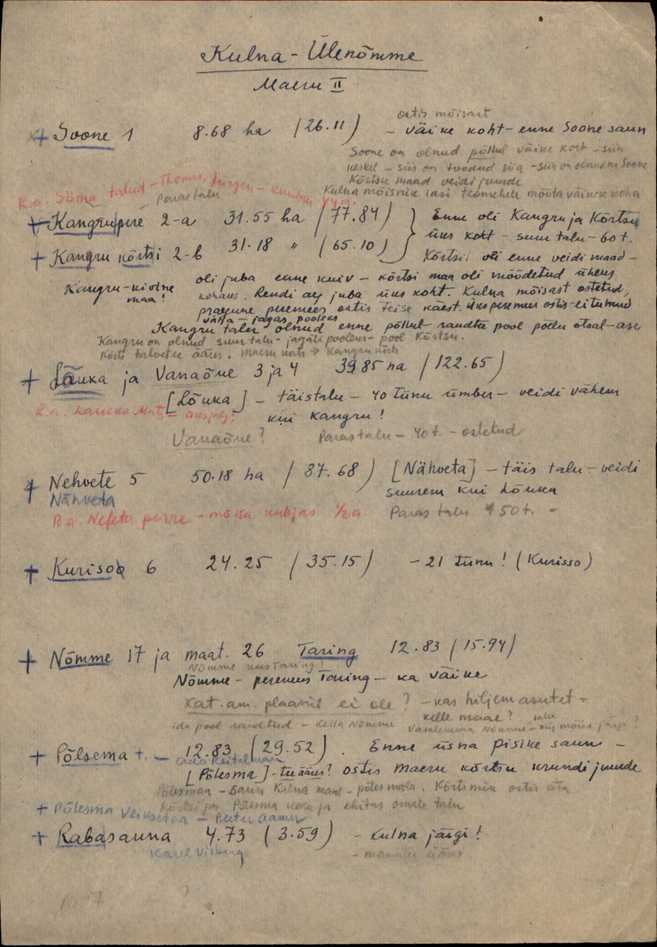 Kulna - Ülenõmme
Maeru II
ostis mõisast
+ Soone 1 8.68 ha (26.11) - väike koht - enne Soone saun
Soone on olnud põllul väike koht - siin
keskel - siis on toodud siia - siin on olnud Soone
Kõrtsu maad veidi juurde
R.a. Söma talud - Thomas, Jürgen -
Kulna mõisnik lasi teomehele mõõta väikese koha
Paras talu
+ Kangrupere 2-a 31.55 ha (77.84) Enne oli Kangru ja Kõrtsu
üks koht - suur talu - 60 t.
+ Kangru kõrtsi 2-b 31.18 " (65.10) Kõrtsil oli enne veidi maad -
Kangru - kivine maa!
oli juba enne kuiv - kõrtsi maa oli mõõdetud üheks
kohaks. Rendi aj juba üks koht. Kulna mõisast ostetud,
praegune peremees ostis teise käest. Üks peremees ostis
välja - jagas pooleks
Kangru talu olnud enne põllul raudtee pool põllu otsal - ase
Kangru on olnud suur talu - jagati pooleks - pool Kõrtsu.
Kõrts talvetee ääres. Maeru kõrts → Kangru kõrts
+ Lõuka ja Vanaõue 3 ja 4 39.85 ha (122.65)
[Lõuka] - täistalu - 40 tünu ümber - veidi vähem
kui Kangru!
Vanaõue? Paras talu - 40 t. - ostetud
+ Nehvete 5 50.18 ha (87.68) [Nähveta] - täis talu - veidi
Nähveta
suurem kui Lõuka
R.a. Nefeta perre - mõisa kubjas 1/2 a Paras talu 50 t. -
+ Kurisoo 6 24.25 (35.15) - 21 tünu! (Kurisso)
+ Nõmme 17 ja maat. 26 Taring 12.83 (15.94)
Nõmme uus Taring!
Nõmme - peremees Taring - ka väike
Kat. am. plaanil ei ole? - kas hiljem asutet -
kelle maale?
ida pool raudteed - Keila Nõmme
+ Põlsema t. - 12.83 (29.52). Enne üsna pisike saun -
[Põlesma] - tee ääres? ostis Maeru kõrtsu krundi juurde
Põlesmaa - saun Kulna maal - põles maha. Kõrtsmik ostis ära
kõrtsi ja Põlesma koha ja ehitas omale talu
+ Põlesma Väiksetoa - Peeter Aamer
+ Rabasauna 4.73 (3.59) - Kulna järgi!
Karel Visberg
- maantee ääres